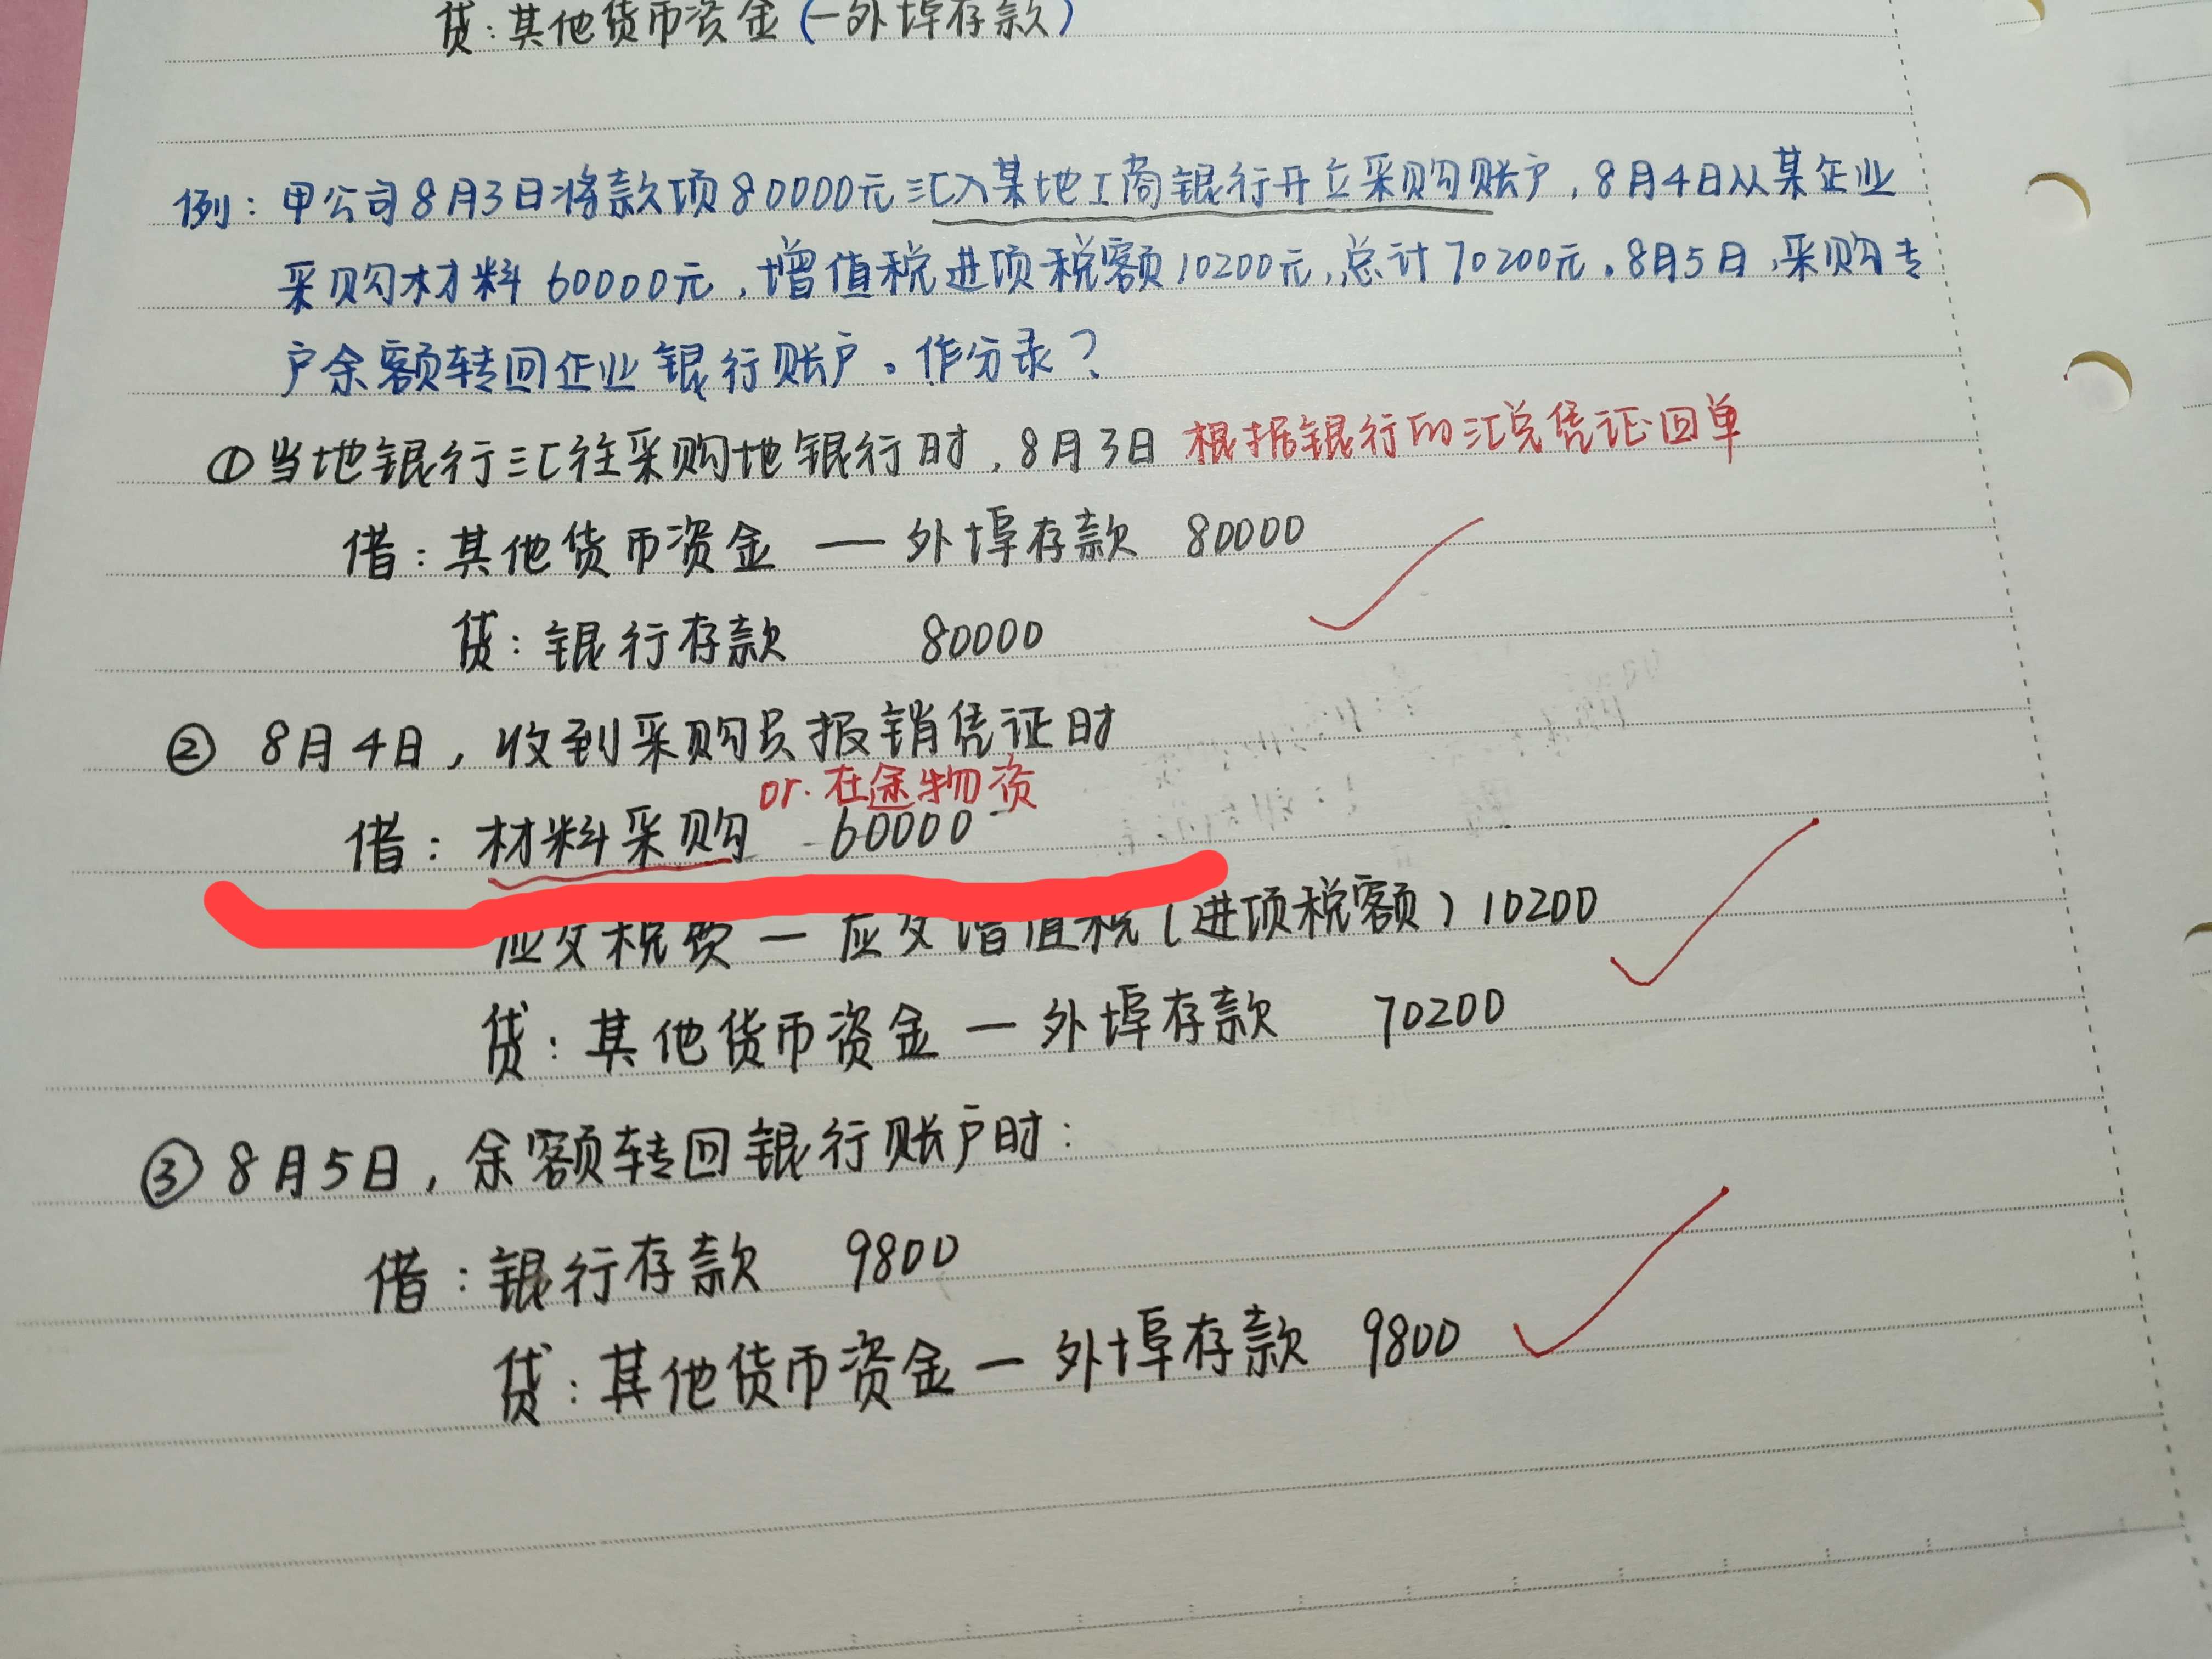 贷：其他货币资金(一外埠存款)
例：甲公司8月3日将款项80000元汇入某地工商银行开立采购账户，8月4日从某企业
采购材料60000元，增值税进项税额10200元，总计70200元。8月5日，采购专
户余额转回企业银行账户。作分录？
①当地银行汇往采购地银行时，8月3日 根据银行的汇兑凭证回单
借：其他货币资金 — 外埠存款 80000
贷：银行存款 80000
② 8月4日，收到采购员报销凭证时
or. 在途物资
借：材料采购 60000
应交税费 — 应交增值税(进项税额) 10200
贷：其他货币资金 — 外埠存款 70200
③ 8月5日，余额转回银行账户时：
借：银行存款 9800
贷：其他货币资金 — 外埠存款 9800